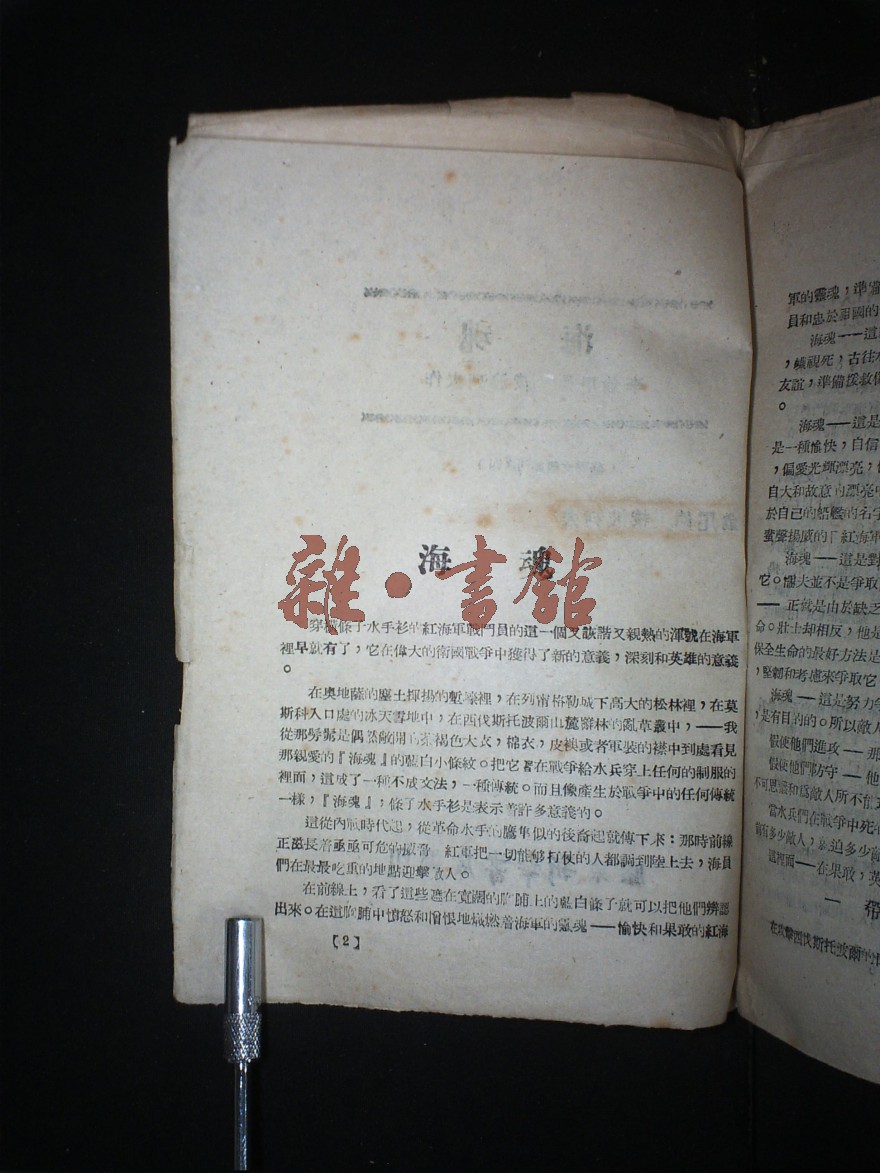 海 魂
雜·書館
穿藍條子水手衫的紅海軍戰鬥員的這一個又詼諧又親熱的渾號在海軍
裡早就有了，它在偉大的衛國戰爭中獲得了新的意義，深刻和英雄的意義
。
在奧地薩的塵土揮揚的塹壕裡，在列甯格勒城下高大的松林裡，在莫
斯科入口處的冰天雪地中，在西伐斯托波爾山麓辮林的亂草叢中，——我
從那髣髴是偶然敞開的茶褐色大衣，棉衣，皮襖或者軍裝的襟中到處看見
那親愛的『海魂』的藍白小條紋。把它著在戰爭給水兵穿上任何的制服的
裡面，這成了一種不成文法，一種傳統。而且像產生於戰爭中的任何傳統
一樣，『海魂』，條子水手衫是表示著許多意義的。
這從內戰時代起，從革命水手的鷹隼似的後裔起就傳下來：那時前線
正滋長着亟亟可危的威脅 紅軍把一切能夠打仗的人都調到陸上去，海員
們在最最吃重的地點迎擊敵人。
在前線上，看了這些遮在寬闊的胸脯上的藍白條子就可以把他們辨認
出來。在這胸脯中憤怒和愉恨地熾燃着海軍的靈魂——愉快和果敢的紅海
【2】
軍的靈魂，準備
員和忠於祖國的
海魂——這
，蔑視死，古往
友誼，準備援救
。
海魂——這是
是一種愉快，自信
，偏愛光輝漂亮，
自大和故意的漂亮
於自己的船艦的名字
聲揚威的「紅海軍
海魂——這是對
它。懦夫並不是爭取
——正就是由於缺乏
命。壯士却相反，他是
保全生命的最好方法是
，堅韌和考慮來爭取它
海魂——這是努力爭
，是有目的的。所以敵人
假使他們進攻——那
假使他們防守——他
不可思議和為敵人所不能
當水兵們在戰爭中死
前有多少敵人，
這裡面——在果敢，英
一 帶